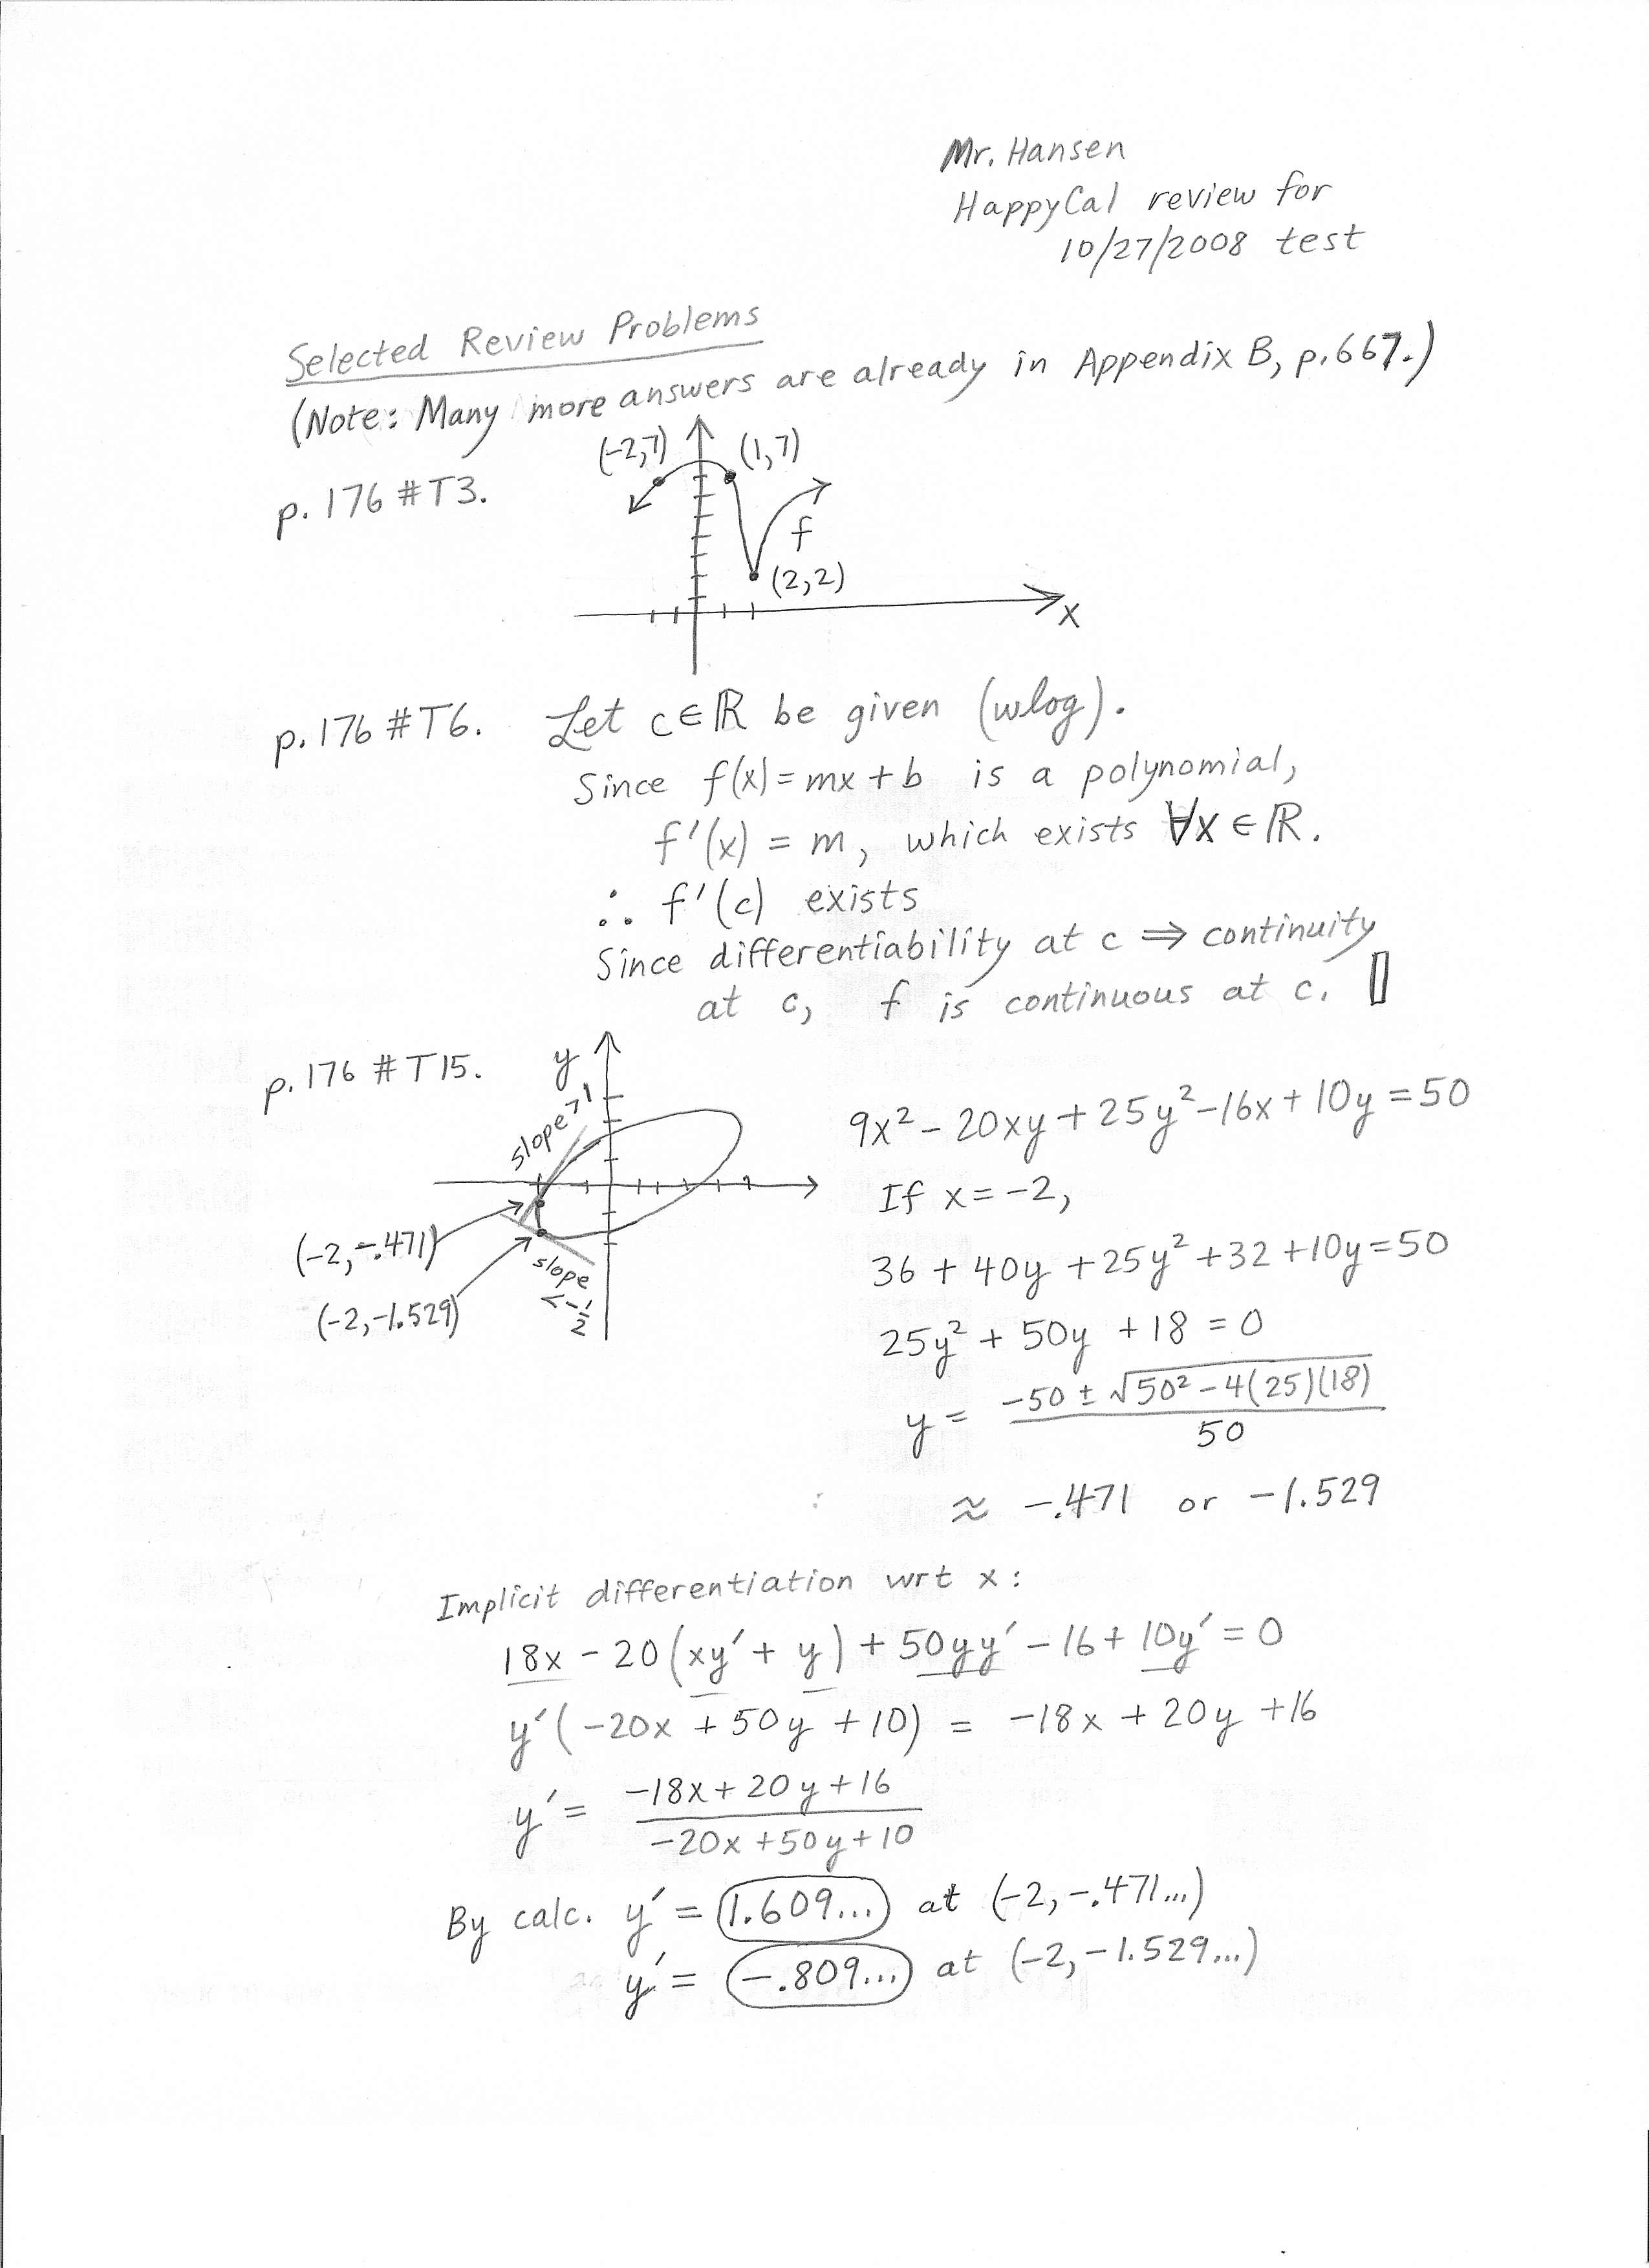 Mr. Hansen
HappyCal review for
10/27/2008 test
Selected Review Problems
(Note: Many more answers are already in Appendix B, p.667.)
p. 176 #T3.
(-2,7)
(1,7)
f
(2,2)
x
p. 176 #T6. Let c∈ℝ be given (wlog).
Since f(x)=mx+b is a polynomial,
f'(x) = m, which exists ∀x∈ℝ.
∴ f'(c) exists
Since differentiability at c ⇒ continuity
at c, f is continuous at c. ▯
p. 176 #T15.
y
slope>1
(-2,-.471)
slope
<-1/2
(-2,-1.529)
9x²-20xy+25y²-16x+10y=50
If x=-2,
36+40y+25y²+32+10y=50
25y²+50y+18=0
y = (-50±√50²-4(25)(18))/50
≈ -.471 or -1.529
Implicit differentiation wrt x:
18x-20(xy'+y)+50yy'-16+10y'=0
y'(-20x+50y+10) = -18x+20y+16
y' = (-18x+20y+16)/(-20x+50y+10)
By calc. y' = 1.609... at (-2,-.471...)
y' = -.809... at (-2,-1.529...)